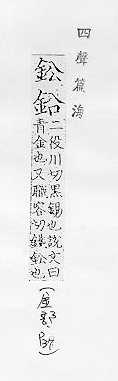 四聲篇海
鈆鉛二役川切黑錫也說文曰
青金也又職容切鐵鈆也